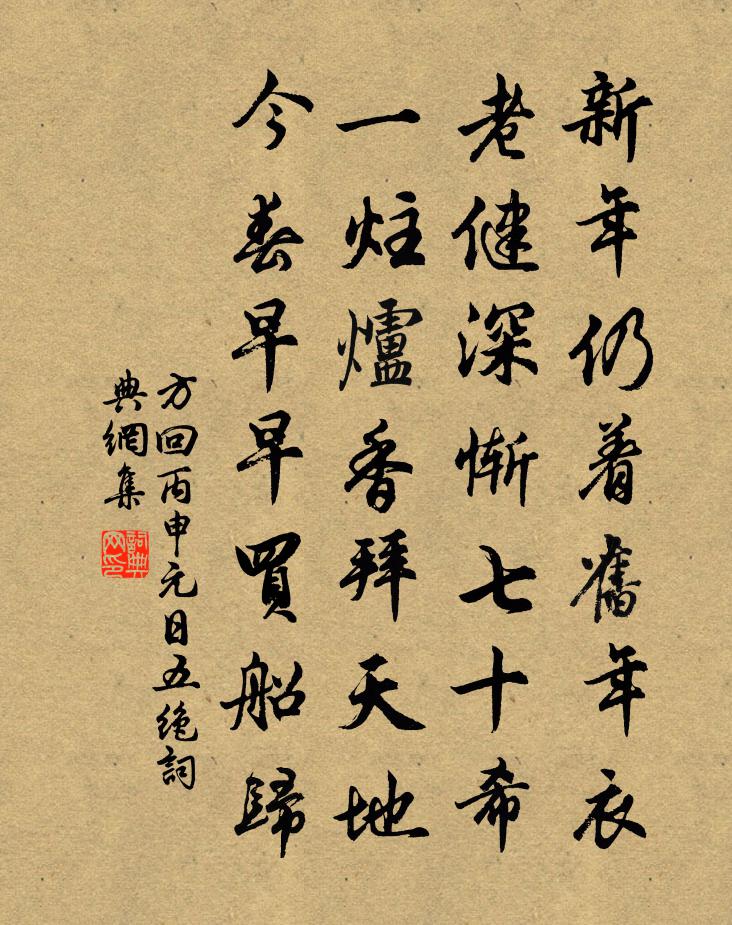 新年仍着舊年衣
老健深慚七十希
一炷爐香拜天地
今春早早買船歸
方回丙申元日五絶詞
典網集
詞典
网印